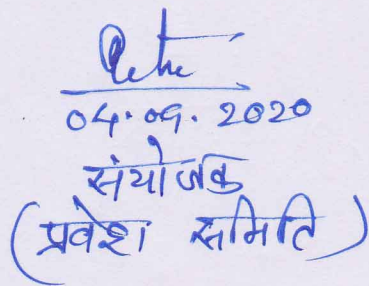 04.09.2020
संयोजक
(प्रवेश समिति)